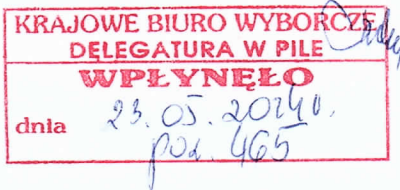 KRAJOWE BIURO WYBORCZE
DELEGATURA W PILE
WPŁYNĘŁO
dnia 23.05.2024r.
poz. 465